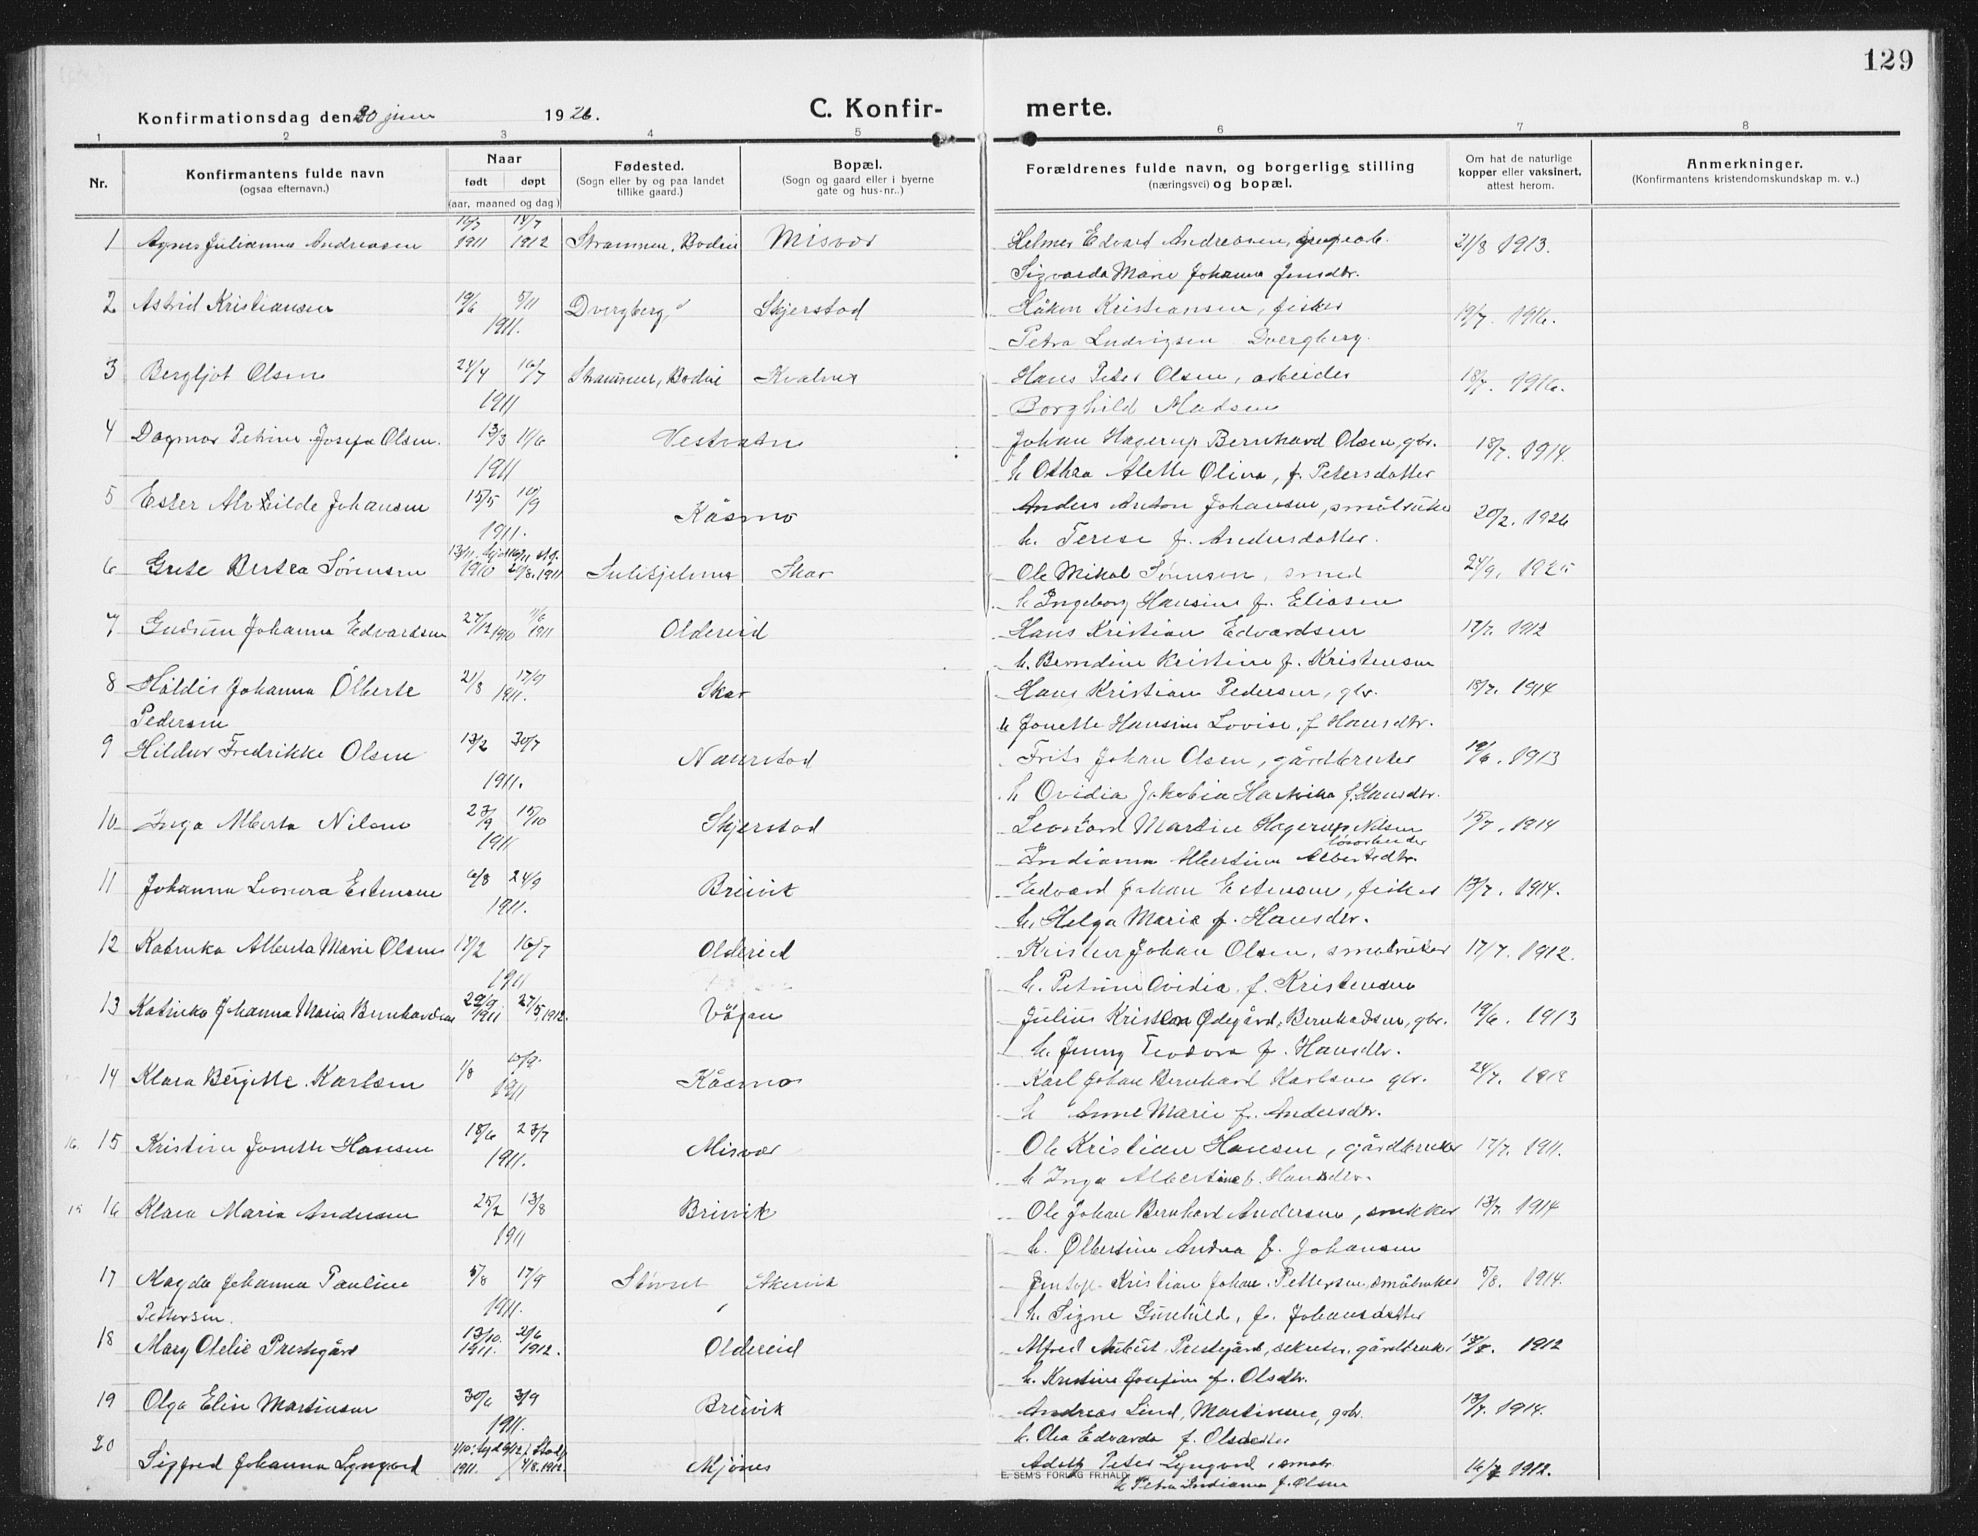 129
Konfirmationsdag den 20 juni 1926.
C. Konfirmerte.
1 2 3 4 5 6 7 8
Nr.
Konfirmantens fulde navn
(ogsaa efternavn.)
Naar
født døpt
(aar, maaned og dag)
Fødested.
(Sogn eller by og paa landet
tillike gaard.)
Bopæl.
(Sogn og gaard eller i byerne
gate og hus-nr..)
Forældrenes fulde navn, og borgerlige stilling
(næringsvei) og bopæl.
Om hat de naturlige
kopper eller vaksinert,
attest herom.
Anmerkninger.
(Konfirmantens kristendomskundskap m. v..)
1 Agnes Julianna Andreasen 1911 14/7 1912 Strammen, Bodin Misvær Helmer Edvard Andreasen, 21/8 1913.
Sigvarda Marie Johanna Jensdtr.
2 Astrid Kristiansen 19/6 5/11 1911. Dvergberg, Skjerstad Håkon Kristiansen, fisker 19/7. 1916.
Petra Ludvigsen Dvergberg.
3 Bergljot Olsen 24/4 16/7 1911 Strammen, Bodin Kvalnes Hans Peter Olsen, arbeider 18/7. 1916.
Borghild Madsen
4 Dagmar Petrine Josefa Olsen. 13/3 11/6 1911 Vestvatn Johan Hagerup Bernhard Olsen, gbr. 18/7. 1914.
h. Othea Alette Olina, f. Petersdatter
5 Ester Alvhilde Johansen 15/5 10/9 1911. Kåsmo Anders Anton Johansen, småbruker 20/2. 1926
h. Terese f. Andersdatter.
6 Grete Bertea Sørensen 13/11 1910 1911 Sulitjelma Skar Ole Mikal Sørensen, smed 24/9. 1925
h. Ingeborg Hansine f. Eliasen
7 Gudrun Johanna Edvardsen 27/12 1910 11/6 1911 Oldereid Hans Kristian Edvardsen 17/7. 1912
h. Berndine Kristine f. Kristensen
8 Håldis Johanna Ølberte 21/8 17/9 1911. Skar Hans Kristian Pedersen, gbr. 18/7. 1914
Pedersen h. Jonette Hansine Lovise, f. Hansdtr.
9 Hildur Fredrikke Olsen 13/2 30/7 1911. Naurstad Frits Johan Olsen, gårdbruker 19/6. 1913
h. Ovidia Jakobia Hartvika f. Hansdtr.
10 Inga Alberta Nilsen 23/9 15/10 1911 Skjerstad Leonhard Martin Hagerup Nilsen 15/7. 1914
løsarbeider
Indianna Albertine Albertsdtr.
11 Johanna Leonora Estensen 6/8 24/9 1911. Breivik Edvard Johan Estensen, fisker 13/7. 1914.
h. Helga Marie f. Hansdtr.
12 Katinka Alberta Marie Olsen 14/2 16/7 1911 Oldereid Johan Olsen, småbruker 17/7. 1912.
h. Petrine Ovidia, f. Kristensen
13 Katinka Johanna Maria Bernhardsen 29/9 1911 27/5, 1912. Vågan Julius Kristian Ødegård, Bernhardsen, gbr. 19/6. 1913
h. Jenny Teodora f. Hansdtr.
14 Klara Bergitte Karlsen 1/8 10/9. 1911 Kåsmo Karl Johan Bernhard Karlsen gbr. 24/7. 1912
h. Anne Marie f. Andersdtr.
16 15 Kristine Jonette Hansen 18/6 23/7 1911. Misvær Ole Kristian Hansen, gårdbruker 17/7. 1911.
h. Inga Albertine f. Hansdtr.
15 16 Klara Maria Andersen 25/2 13/8 1911 Breivik Ole Johan Bernhard Andersen, snekker 13/7. 1914
h. Ølbertine Andrea f. Johansen
17 Magda Johanna Pauline 5/8 17/9 1911. Støvset Skervik Kristian Johan Pettersen småbruker 5/8. 1914.
Pettersen. h. Signe Gunhild, f. Johansdatter
18 Mary Otelie Prestegård 13/10. 1911. 2/6 1912. Oldereid Alfred August Prestegård, gårdbruker 1912
h. Kristine Josefine f. Olsdtr.
19 Olga Elin Martinsen 30/6 3/9 1911. Breivik Andreas Lind, Martinsen, gbr. 13/7. 1914.
h. Olea Edvarda f. Olsdatter
20 Sigfred Johanna Lyngved 1911. 4/8.1912. Mjønes Adolf Peter Lyngved, småbr. 16/7 1912.
h. Petra Indianna f. Olsen
E. SEM'S FORLAG FR.HALD.